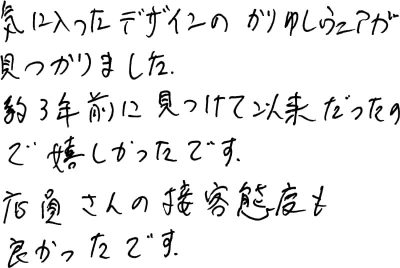 気に入ったデザインのかりゆしウェアが
見つかりました.
約3年前に見つけて以来だったの
で嬉しかったです.
店員さんの接客態度も
良かったです.